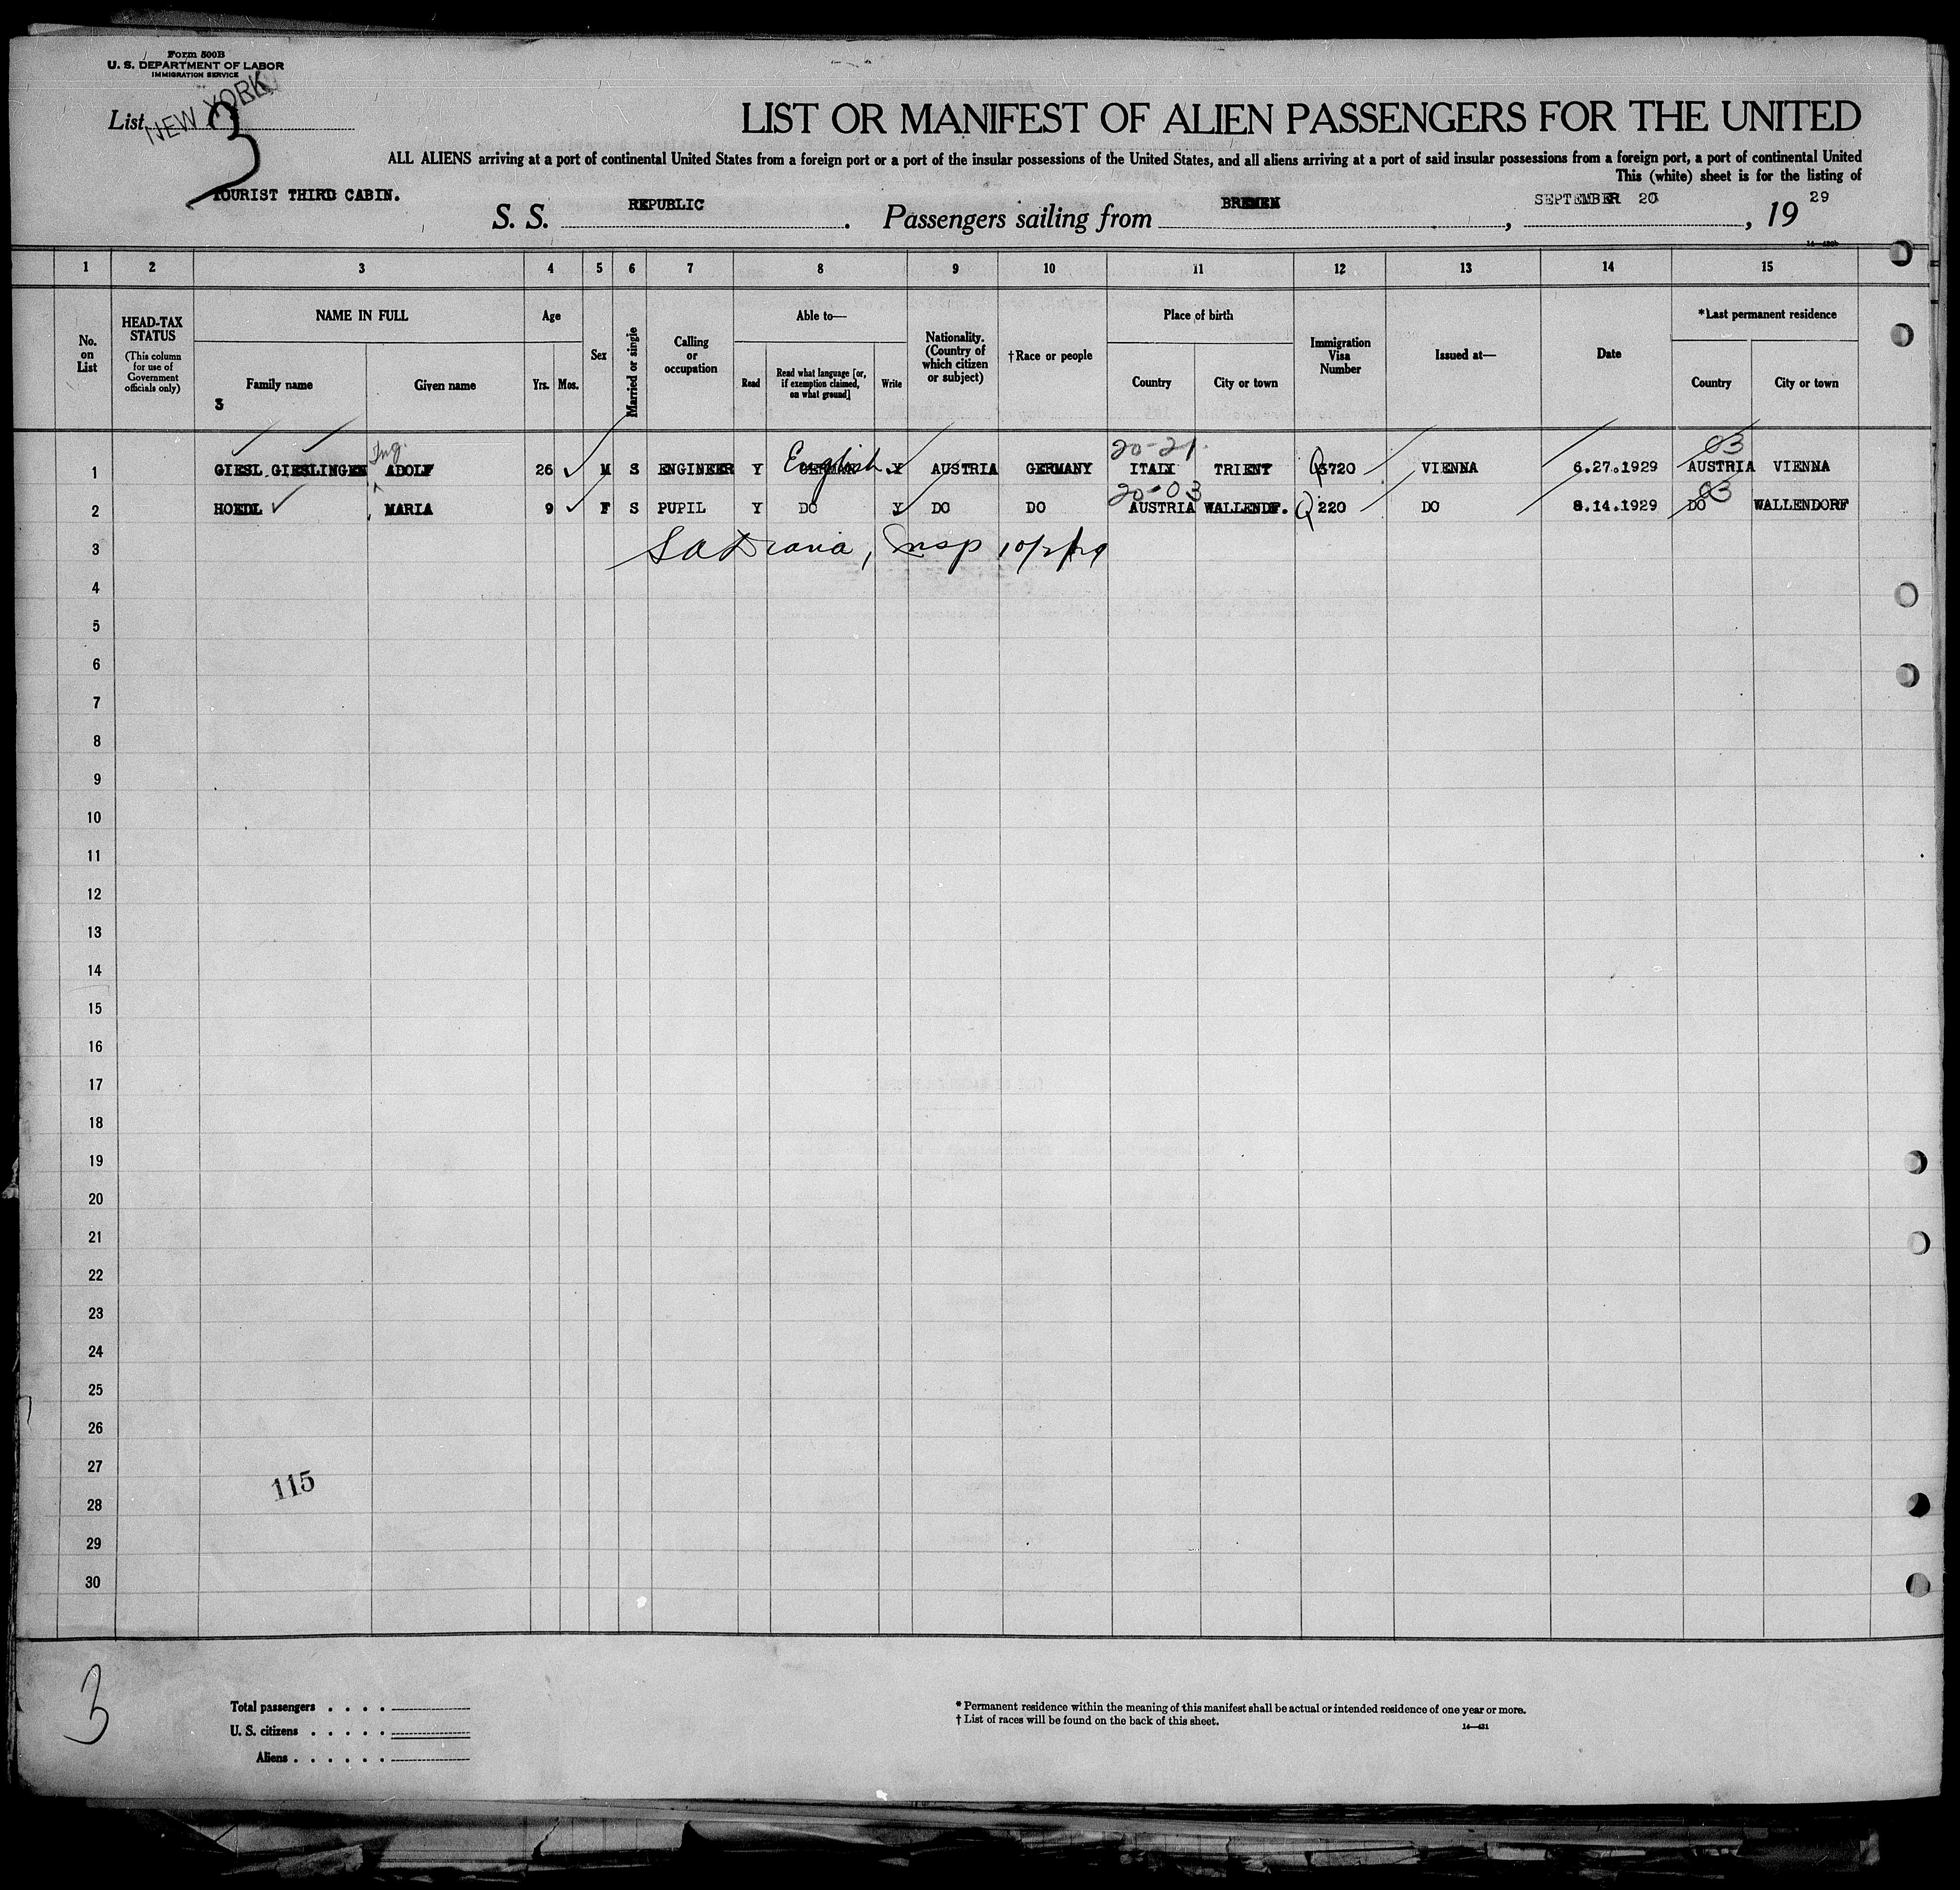 Form 500B
U. S. DEPARTMENT OF LABOR
IMMIGRATION SERVICE
NEW YORK
List 3
LIST OR MANIFEST OF ALIEN PASSENGERS FOR THE UNITED
ALL ALIENS arriving at a port of continental United States from a foreign port or a port of the insular possessions of the United States, and all aliens arriving at a port of said insular possessions from a foreign port, a port of continental United
This (white) sheet is for the listing of
TOURIST THIRD CABIN.
S. S. REPUBLIC. Passengers sailing from BREMEN, SEPTEMBER 20, 19 29
1 2 3 4 5 6 7 8 9 10 11 12 13 14 15
No. on List
HEAD-TAX STATUS (This column for use of Government officials only)
NAME IN FULL
Family name
3
Given name
Age
Yrs. Mos.
Sex
Married or single
Calling or occupation
Able to—
Read
Read what language [or, if exemption claimed, on what ground]
Write
Nationality. (Country of which citizen or subject)
†Race or people
Place of birth
Country
City or town
Immigration Visa Number
Issued at—
Date
*Last permanent residence
Country
City or town
Ing. English 20-21 03
1 GIESL GIESLINGEN ADOLF 26 M S ENGINEER Y GERMAN Y AUSTRIA GERMANY ITALY TRIENT Q 3720 VIENNA 6.27.1929 AUSTRIA VIENNA
20-03 03
2 HOEDL MARIA 9 F S PUPIL Y DO Y DO DO AUSTRIA WALLENDF. Q 220 DO 8.14.1929 DO WALLENDORF
3 Insp 10/2/29
4
5
6
7
8
9
10
11
12
13
14
15
16
17
18
19
20
21
22
23
24
25
26
27
115
28
29
30
3
Total passengers . . . .
U. S. citizens . . . . .
Aliens . . . . . .
* Permanent residence within the meaning of this manifest shall be actual or intended residence of one year or more.
† List of races will be found on the back of this sheet.
14—431